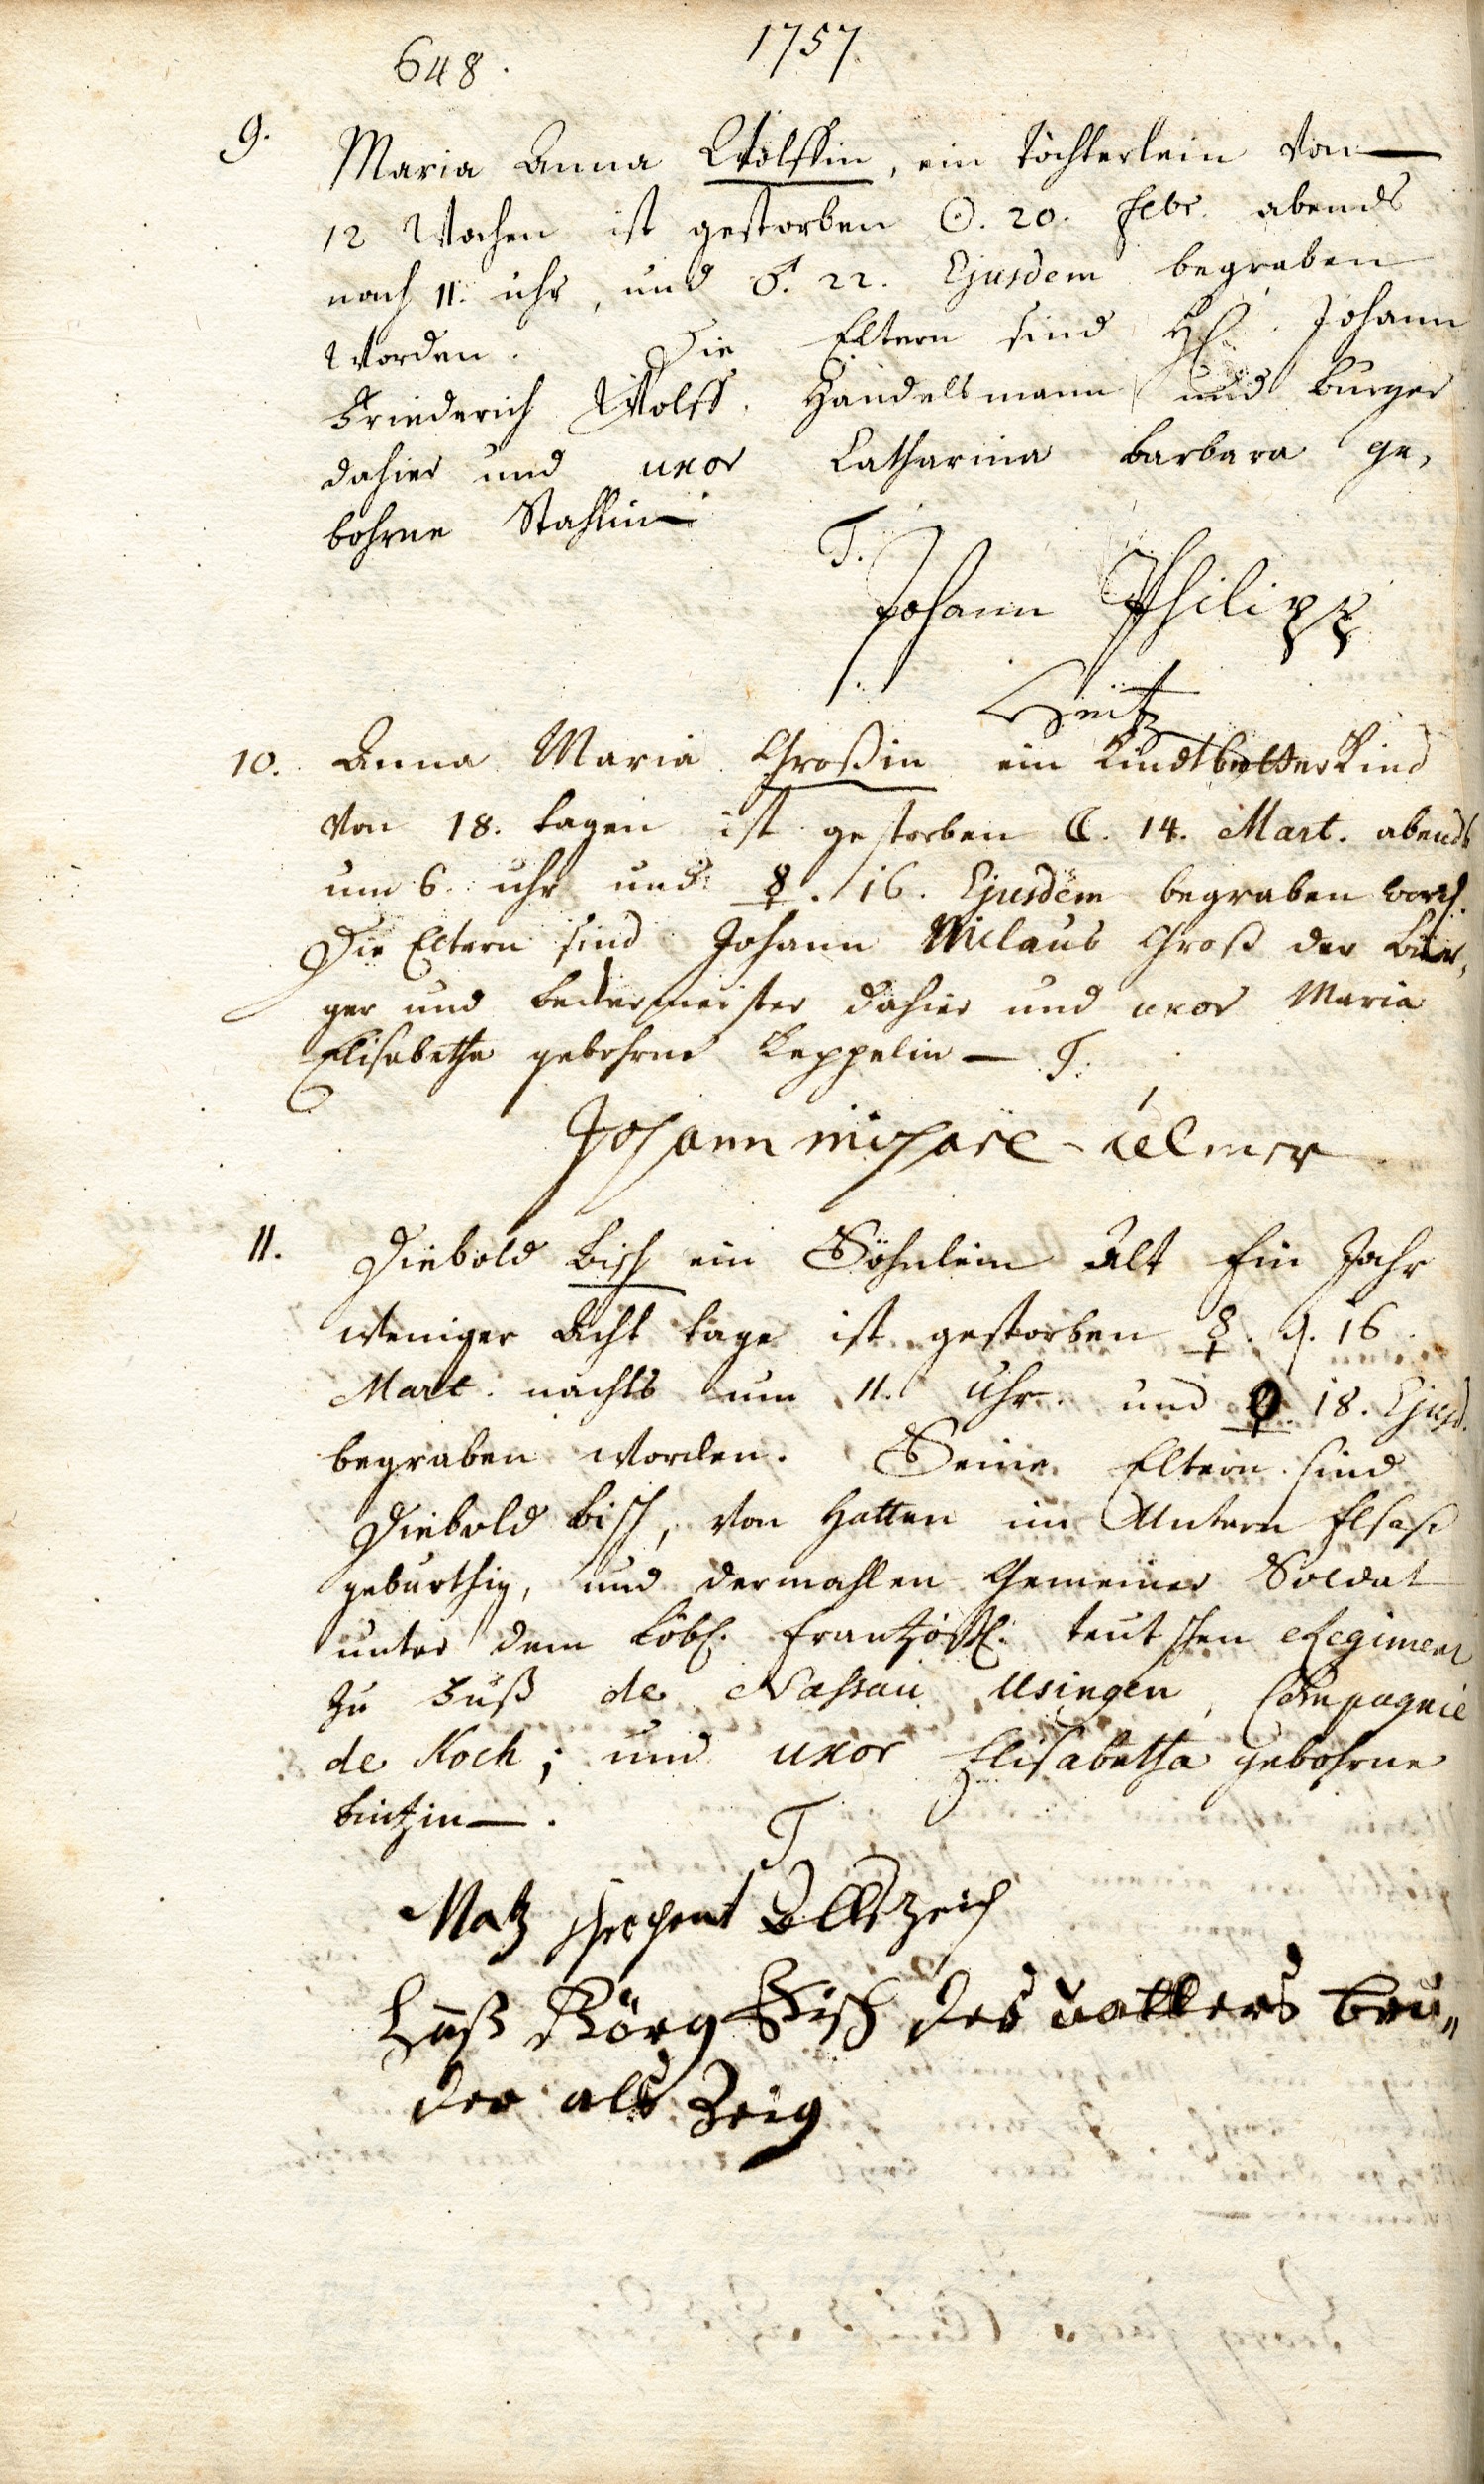 648.
1757.
9. Maria Anna Wolffin, ein Töchterlein von
12 Wochen ist gestorben ☉. 20. Febr. abends
nach 11. uhr, und ♂. 22. Ejusdem begraben
worden. Die Eltern sind H. Johann
Friederich Wolff, Handelsmann und burger
dahier und uxor Catharina Barbara ge,
bohrne Stahlin
T.
Johann Philipp
10. Anna Maria Großin ein Kindtbetterkind
von 18. tagen ist gestorben ☾. 14. Mart. abends
um 6. uhr und ☿. 16. Ejusdem begraben word.
Die Eltern sind Johann Niclaus Groß der bur,
ger und beckermeister dahier und uxor Maria
Elisabetha gebohrne Keppelin T.
Johann michael
11. Diebold Bisch ein Söhnlein alt Ein Jahr
weniger Acht tage ist gestorben ☿. d. 16.
Mart. nachts um 11. Uhr. und ♀. 18. Ejusd.
begraben worden. Seine Eltern sind
Diebold Bisch, von Hatten im Untern Elsaß
gebürthig, und dermahlen Gemeiner Soldat
unter dem Löbl. Frantzösl. teutschen Regiment
zu Fuß de Nassau Usingen, Compagnie
de Koch; und uxor Elisabetha gebohrne
Bintzin.
T
Matz
Hanß Görg Bisch des vatters bru„
der als Zeig